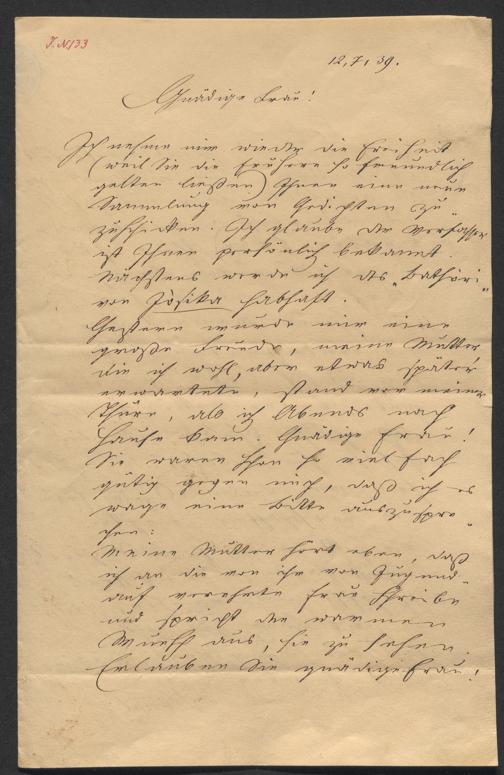 J.N 133
12, 7, 39.
Gnädige Frau!
Ich nehme mir wieder die Freiheit
(weil Sie die frühere so freundlich
gelten ließen) Ihnen eine neue
Sammlung von Gedichten zu-
zuschicken. Ich glaube der Verfasser
ist Ihnen persönlich bekannt.
Nächstens werde ich des „Bathori"
von Jósika habhaft.
Gestern wurde mir eine
große Freude, meine Mutter
die ich wohl, aber etwas später
erwartete, stand vor meiner
Thüre, als ich Abends nach
Hause kam. Gnädige Frau!
Sie waren schon so vielfach
gütig gegen mich, daß ich es
wage eine Bitte auszuspre-
chen:
Meine Mutter hört eben, daß
ich an die von ihr von Jugend
auf verehrte Frau schreibe
und spricht den warmen
Wunsch aus, sie zu sehen.
Erlauben Sie gnädige Frau!